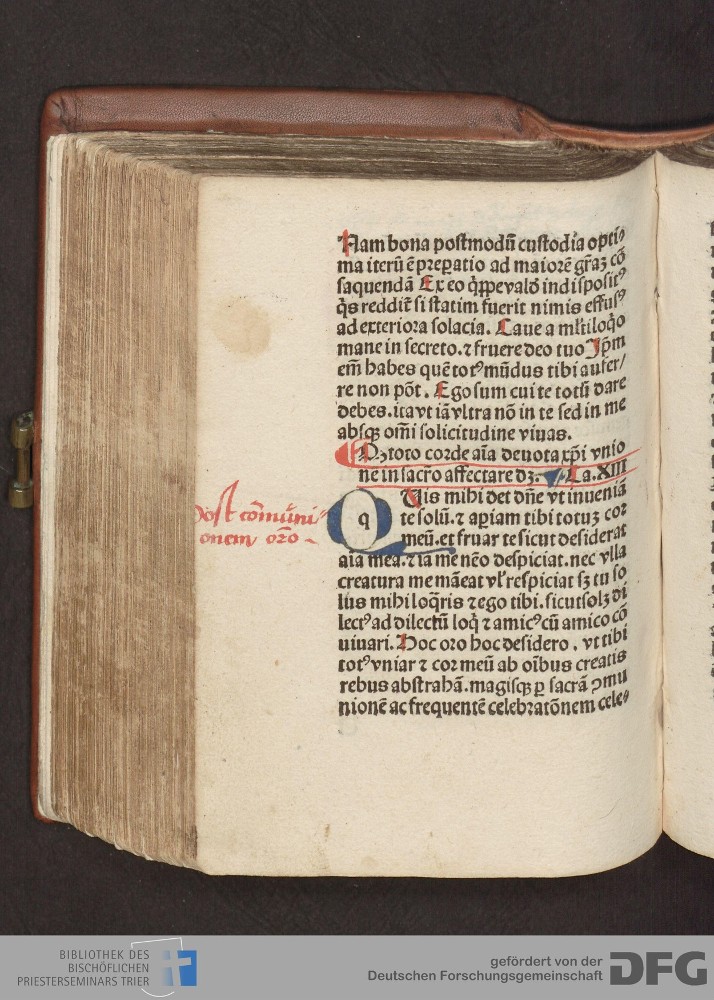 Nam bona postmodū custodia opti⸗
ma iterū ē preparatio ad maiorē gr̄aȝ cō
saquendā Ex eo q̄ppe valdꝰ indispositꝰ
q̄s reddit̄ si statim fuerit nimis effusꝰ
ad exteriora solacia. Caue a ml̄tiloq̄o
mane in secreto. ⁊ fruere deo tuo Ip̄m
em̄ habes quē totꝰ mūdus tibi aufer/
re non pōt. Ego sum cui te totū dare
debes. ita vt iā vltra nō in te sed in me
absqꝫ om̄i solicitudine viuas.
Qꝫ toto corde aīa deuota xp̄i vnio
ne in sacr̄o affectare dꝫ. Ca. XIII
Quis mihi det dn̄e vt inueniā
te solū. ⁊ apiam tibi totuȝ cor
q
meū. et fruar te sicut desiderat
post com̄uni⸗
onem or̄o
aīa mea. ⁊ iā me nēo despiciat. nec vlla
creatura me māeat vl̓ respiciat sꝫ tu so
lus mihi loq̄ris ⁊ ego tibi. sicut solꝫ di
lectꝰ ad dilectū loq̄ ⁊ amicꝰ cū amico cō
uiuari. Hoc oro hoc desidero. vt tibi
totꝰ vniar ⁊ cor meū ab oībus creatis
rebus abstrahā. magisqꝫ ꝑ sacrā ꝯmu
nionē ac frequentē celebratōnem cele⸗
BIBLIOTHEK DES
BISCHÖFLICHEN
PRIESTERSEMINARS TRIER
gefördert von der
Deutschen Forschungsgemeinschaft
DFG